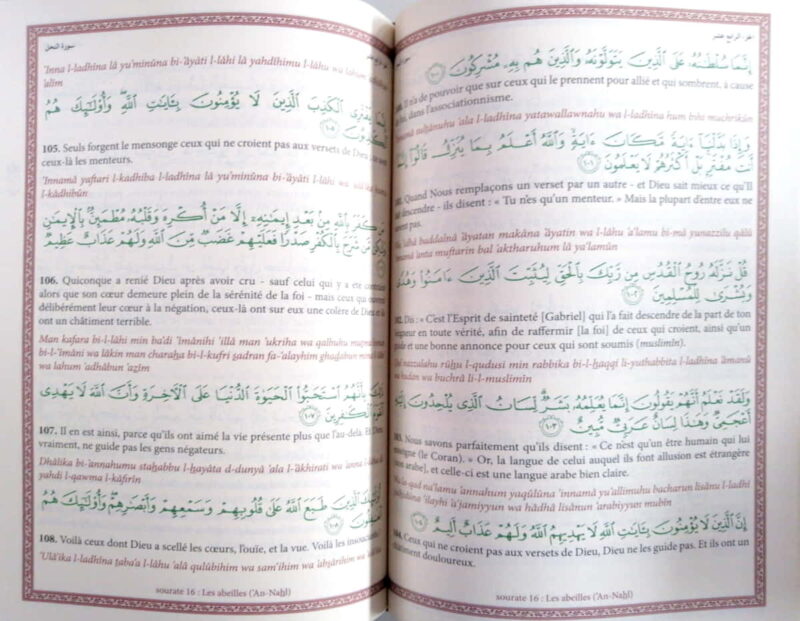 الجزء الرابع عشر
إِنَّمَا سُلْطَٰنُهُۥ عَلَى ٱلَّذِينَ يَتَوَلَّوْنَهُۥ وَٱلَّذِينَ هُم بِهِۦ مُشْرِكُونَ ١٠٠
Il n'a de pouvoir que sur ceux qui le prennent pour allié et qui sombrent, à cause
de lui, dans l'associationnisme.
sulṭânuhu 'ala l-ladhîna yatawallawnahu wa l-ladhîna hum bihi muchrikûn
وَإِذَا بَدَّلْنَآ ءَايَةً مَّكَانَ ءَايَةٍ وَٱللَّهُ أَعْلَمُ بِمَا يُنَزِّلُ قَالُوٓا۟ إِنَّمَآ
أَنتَ مُفْتَرٍۭ بَلْ أَكْثَرُهُمْ لَا يَعْلَمُونَ ١٠١
Quand Nous remplaçons un verset par un autre - et Dieu sait mieux ce qu'Il
descendre - ils disent : « Tu n'es qu'un menteur. » Mais la plupart d'entre eux ne
pas.
baddalnâ 'âyatan makâna 'âyatin wa l-lâhu 'a'lamu bi-mâ yunazzilu qâlû
'anta muftarin bal 'aktharuhum lâ ya'lamûn
قُلْ نَزَّلَهُۥ رُوحُ ٱلْقُدُسِ مِن رَّبِّكَ بِٱلْحَقِّ لِيُثَبِّتَ ٱلَّذِينَ ءَامَنُوا۟ وَهُدًى
وَبُشْرَىٰ لِلْمُسْلِمِينَ ١٠٢
102. Dis : « C'est l'Esprit de sainteté [Gabriel] qui l'a fait descendre de la part de ton
Seigneur en toute vérité, afin de raffermir [la foi] de ceux qui croient, ainsi qu'un
guide et une bonne annonce pour ceux qui sont soumis (muslimîn).
nazzalahu rûḥu l-qudusi min rabbika bi-l-ḥaqqi li-yuthabbita l-ladhîna 'âmanû
wa hudan wa buchrâ li-l-muslimîn
وَلَقَدْ نَعْلَمُ أَنَّهُمْ يَقُولُونَ إِنَّمَا يُعَلِّمُهُۥ بَشَرٌ لِّسَانُ ٱلَّذِى يُلْحِدُونَ إِلَيْهِ
أَعْجَمِىٌّ وَهَٰذَا لِسَانٌ عَرَبِىٌّ مُّبِينٌ ١٠٣
103. Nous savons parfaitement qu'ils disent : « Ce n'est qu'un être humain qui lui
enseigne (le Coran). » Or, la langue de celui auquel ils font allusion est étrangère
[non arabe], et celle-ci est une langue arabe bien claire.
na'lamu 'annahum yaqûlûna 'innamâ yu'allimuhu bacharun lisânu l-ladhî
'ilayhi 'a'jamiyyun wa hâdhâ lisânun 'arabiyyun mubîn
إِنَّ ٱلَّذِينَ لَا يُؤْمِنُونَ بِـَٔايَٰتِ ٱللَّهِ لَا يَهْدِيهِمُ ٱللَّهُ وَلَهُمْ عَذَابٌ أَلِيمٌ ١٠٤
104. Ceux qui ne croient pas aux versets de Dieu, Dieu ne les guide pas. Et ils ont un
châtiment douloureux.
sourate 16 : Les abeilles ('An-Naḥl)
سورة النحل
'Inna l-ladhîna lâ yu'minûna bi-'âyâti l-lâhi lâ yahdîhimu l-lâhu wa lahum
'alîm
إِنَّمَا يَفْتَرِى ٱلْكَذِبَ ٱلَّذِينَ لَا يُؤْمِنُونَ بِـَٔايَٰتِ ٱللَّهِ وَأُو۟لَٰٓئِكَ هُمُ
ٱلْكَٰذِبُونَ ١٠٥
105. Seuls forgent le mensonge ceux qui ne croient pas aux versets de Dieu
ceux-là les menteurs.
'Innamâ yaftari l-kadhiba l-ladhîna lâ yu'minûna bi-'âyâti l-lâhi wa 'ulâ'ika
l-kâdhibûn
مَن كَفَرَ بِٱللَّهِ مِنۢ بَعْدِ إِيمَٰنِهِۦٓ إِلَّا مَنْ أُكْرِهَ وَقَلْبُهُۥ مُطْمَئِنٌّۢ بِٱلْإِيمَٰنِ
وَلَٰكِن مَّن شَرَحَ بِٱلْكُفْرِ صَدْرًا فَعَلَيْهِمْ غَضَبٌ مِّنَ ٱللَّهِ وَلَهُمْ عَذَابٌ عَظِيمٌ
106. Quiconque a renié Dieu après avoir cru - sauf celui qui y a été contraint
alors que son cœur demeure plein de la sérénité de la foi - mais ceux qui ouvrent
délibérément leur cœur à la négation, ceux-là ont sur eux une colère de Dieu et
ont un châtiment terrible.
Man kafara bi-l-lâhi min ba'di 'îmânihi 'illâ man 'ukriha wa qalbuhu
bi-l-'îmâni wa lâkin man charaḥa bi-l-kufri ṣadran fa-'alayhim ghaḍabun mina
wa lahum 'adhâbun 'aẓîm
ذَٰلِكَ بِأَنَّهُمُ ٱسْتَحَبُّوا۟ ٱلْحَيَوٰةَ ٱلدُّنْيَا عَلَى ٱلْءَاخِرَةِ وَأَنَّ ٱللَّهَ لَا يَهْدِى
ٱلْقَوْمَ ٱلْكَٰفِرِينَ ١٠٧
107. Il en est ainsi, parce qu'ils ont aimé la vie présente plus que l'au-delà. Et Dieu
vraiment, ne guide pas les gens négateurs.
Dhâlika bi-'annahumu staḥabbu l-ḥayâta d-dunyâ 'ala l-'âkhirati wa 'anna l-lâha
yahdi l-qawma l-kâfirîn
أُو۟لَٰٓئِكَ ٱلَّذِينَ طَبَعَ ٱللَّهُ عَلَىٰ قُلُوبِهِمْ وَسَمْعِهِمْ وَأَبْصَٰرِهِمْ وَأُو۟لَٰٓئِكَ هُمُ
ٱلْغَٰفِلُونَ ١٠٨
108. Voilà ceux dont Dieu a scellé les cœurs, l'ouïe, et la vue. Voilà les insouciants.
'Ulâ'ika l-ladhîna ṭaba'a l-lâhu 'alâ qulûbihim wa sam'ihim wa 'abṣârihim wa
sourate 16 : Les abeilles ('An-Naḥl)